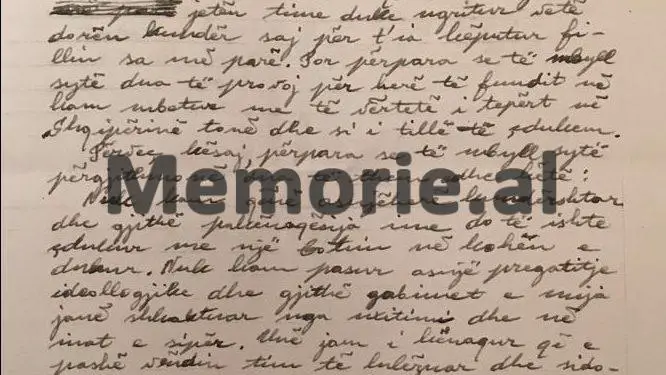 jetën time duke ngritur vetë
dorën kundër saj për t'ia këputur fi-
llin sa më parë. Por përpara se të mbyll
sytë dua të provoj për herë të fundit në
kam mbetur me të vërtetë i tepërt në
Shqipërinë tonë dhe si i tillë të çdukem.
Përveç kësaj, përpara se të mbyll sytë
përgjithmonë
Nuk kam qenë asnjëherë kundërshtar
dhe gjithë pakënaqësija ime do të ishte
çdukur me një botim në kohën e
duhur. Nuk kam pasur asnjë pregatitje
ideollogjike dhe gjithë gabimet e mija
janë shkaktuar nga nxitimi dhe në
inat e sipër. Unë jam i kënaqur që e
pashë vëndin tim të lulëzuar dhe sido-
Memorie.al